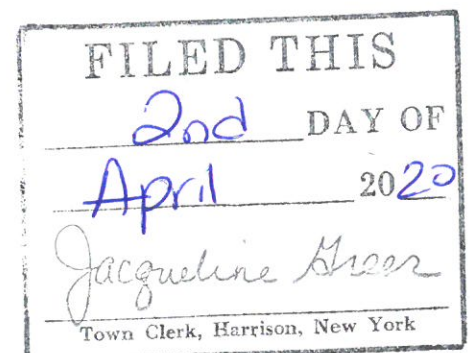 FILED THIS
2nd DAY OF
April 2020
Jacqueline Greer
Town Clerk, Harrison, New York